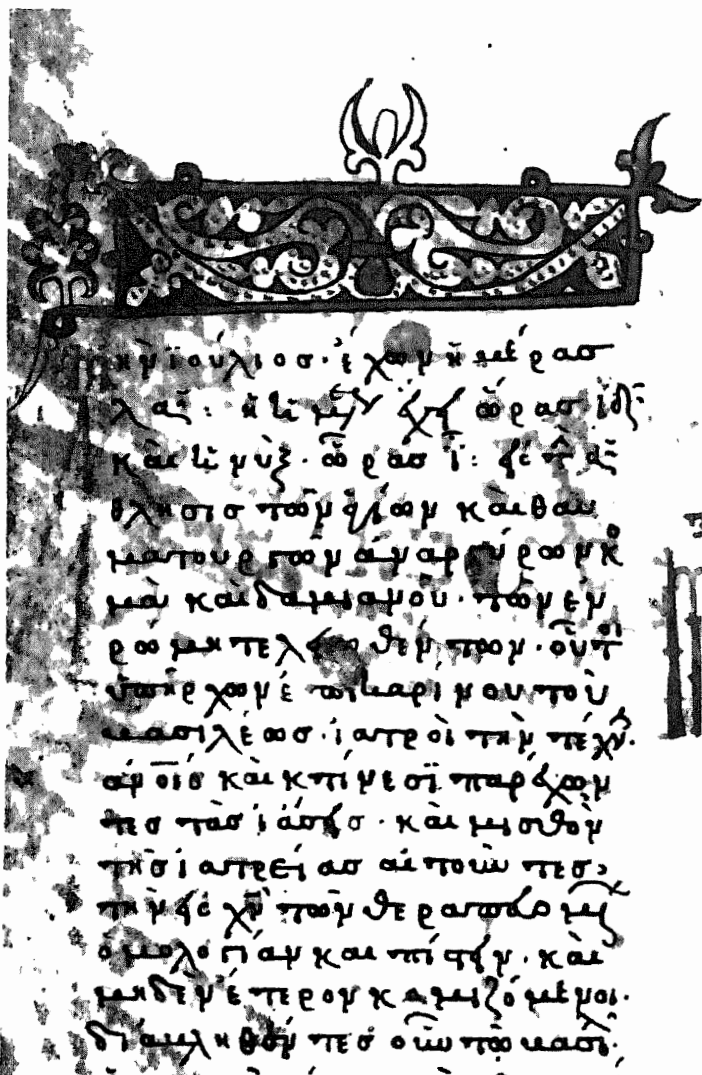 μὴν ἰούλιος· ἔχων ἡμέρας
λα: ἡ ἡμ ἔχ ὥρας ιδ
καὶ ἡ νὺξ· ὥρας ι: εἰς τ α
ἄθλησις τῶν ἁγίων καὶ θαυ
ματουργῶν ἀναργύρων κο
σμὰ καὶ δαμιανοῦ· τῶν ἐν
ρώμη τελειωθέντων· οὗτοι
ὑπῆρχων ἐπι καρίνου τοῦ
βασιλέως· ἰατροὶ τὴν τέχν·
ανοις καὶ κτίνεσι παρέχων
τες τὰς ἰάσεις· καὶ μισθὸν
τῆς ἰατρείας αἰτοῦντες,
τὴν εἰς χν τῶν θεραπευομ
ὁμολογίαν καὶ πίστιν· καὶ
μηδὲν ἕτερον κομιζόμενοι·
διαβληθέντες οὖν τῶ βασιλ·